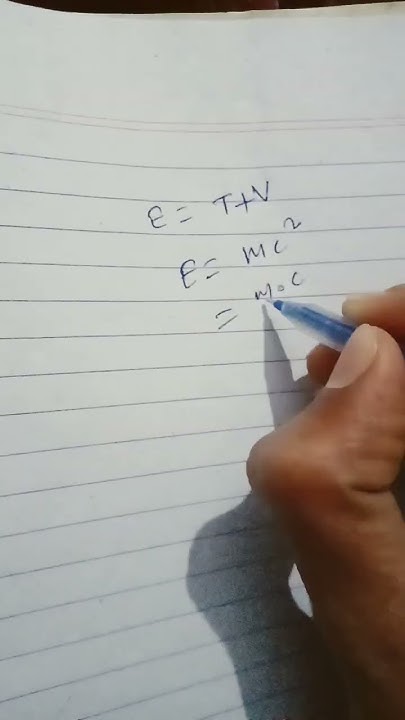 E = T+V
E = mc²
= m₀c